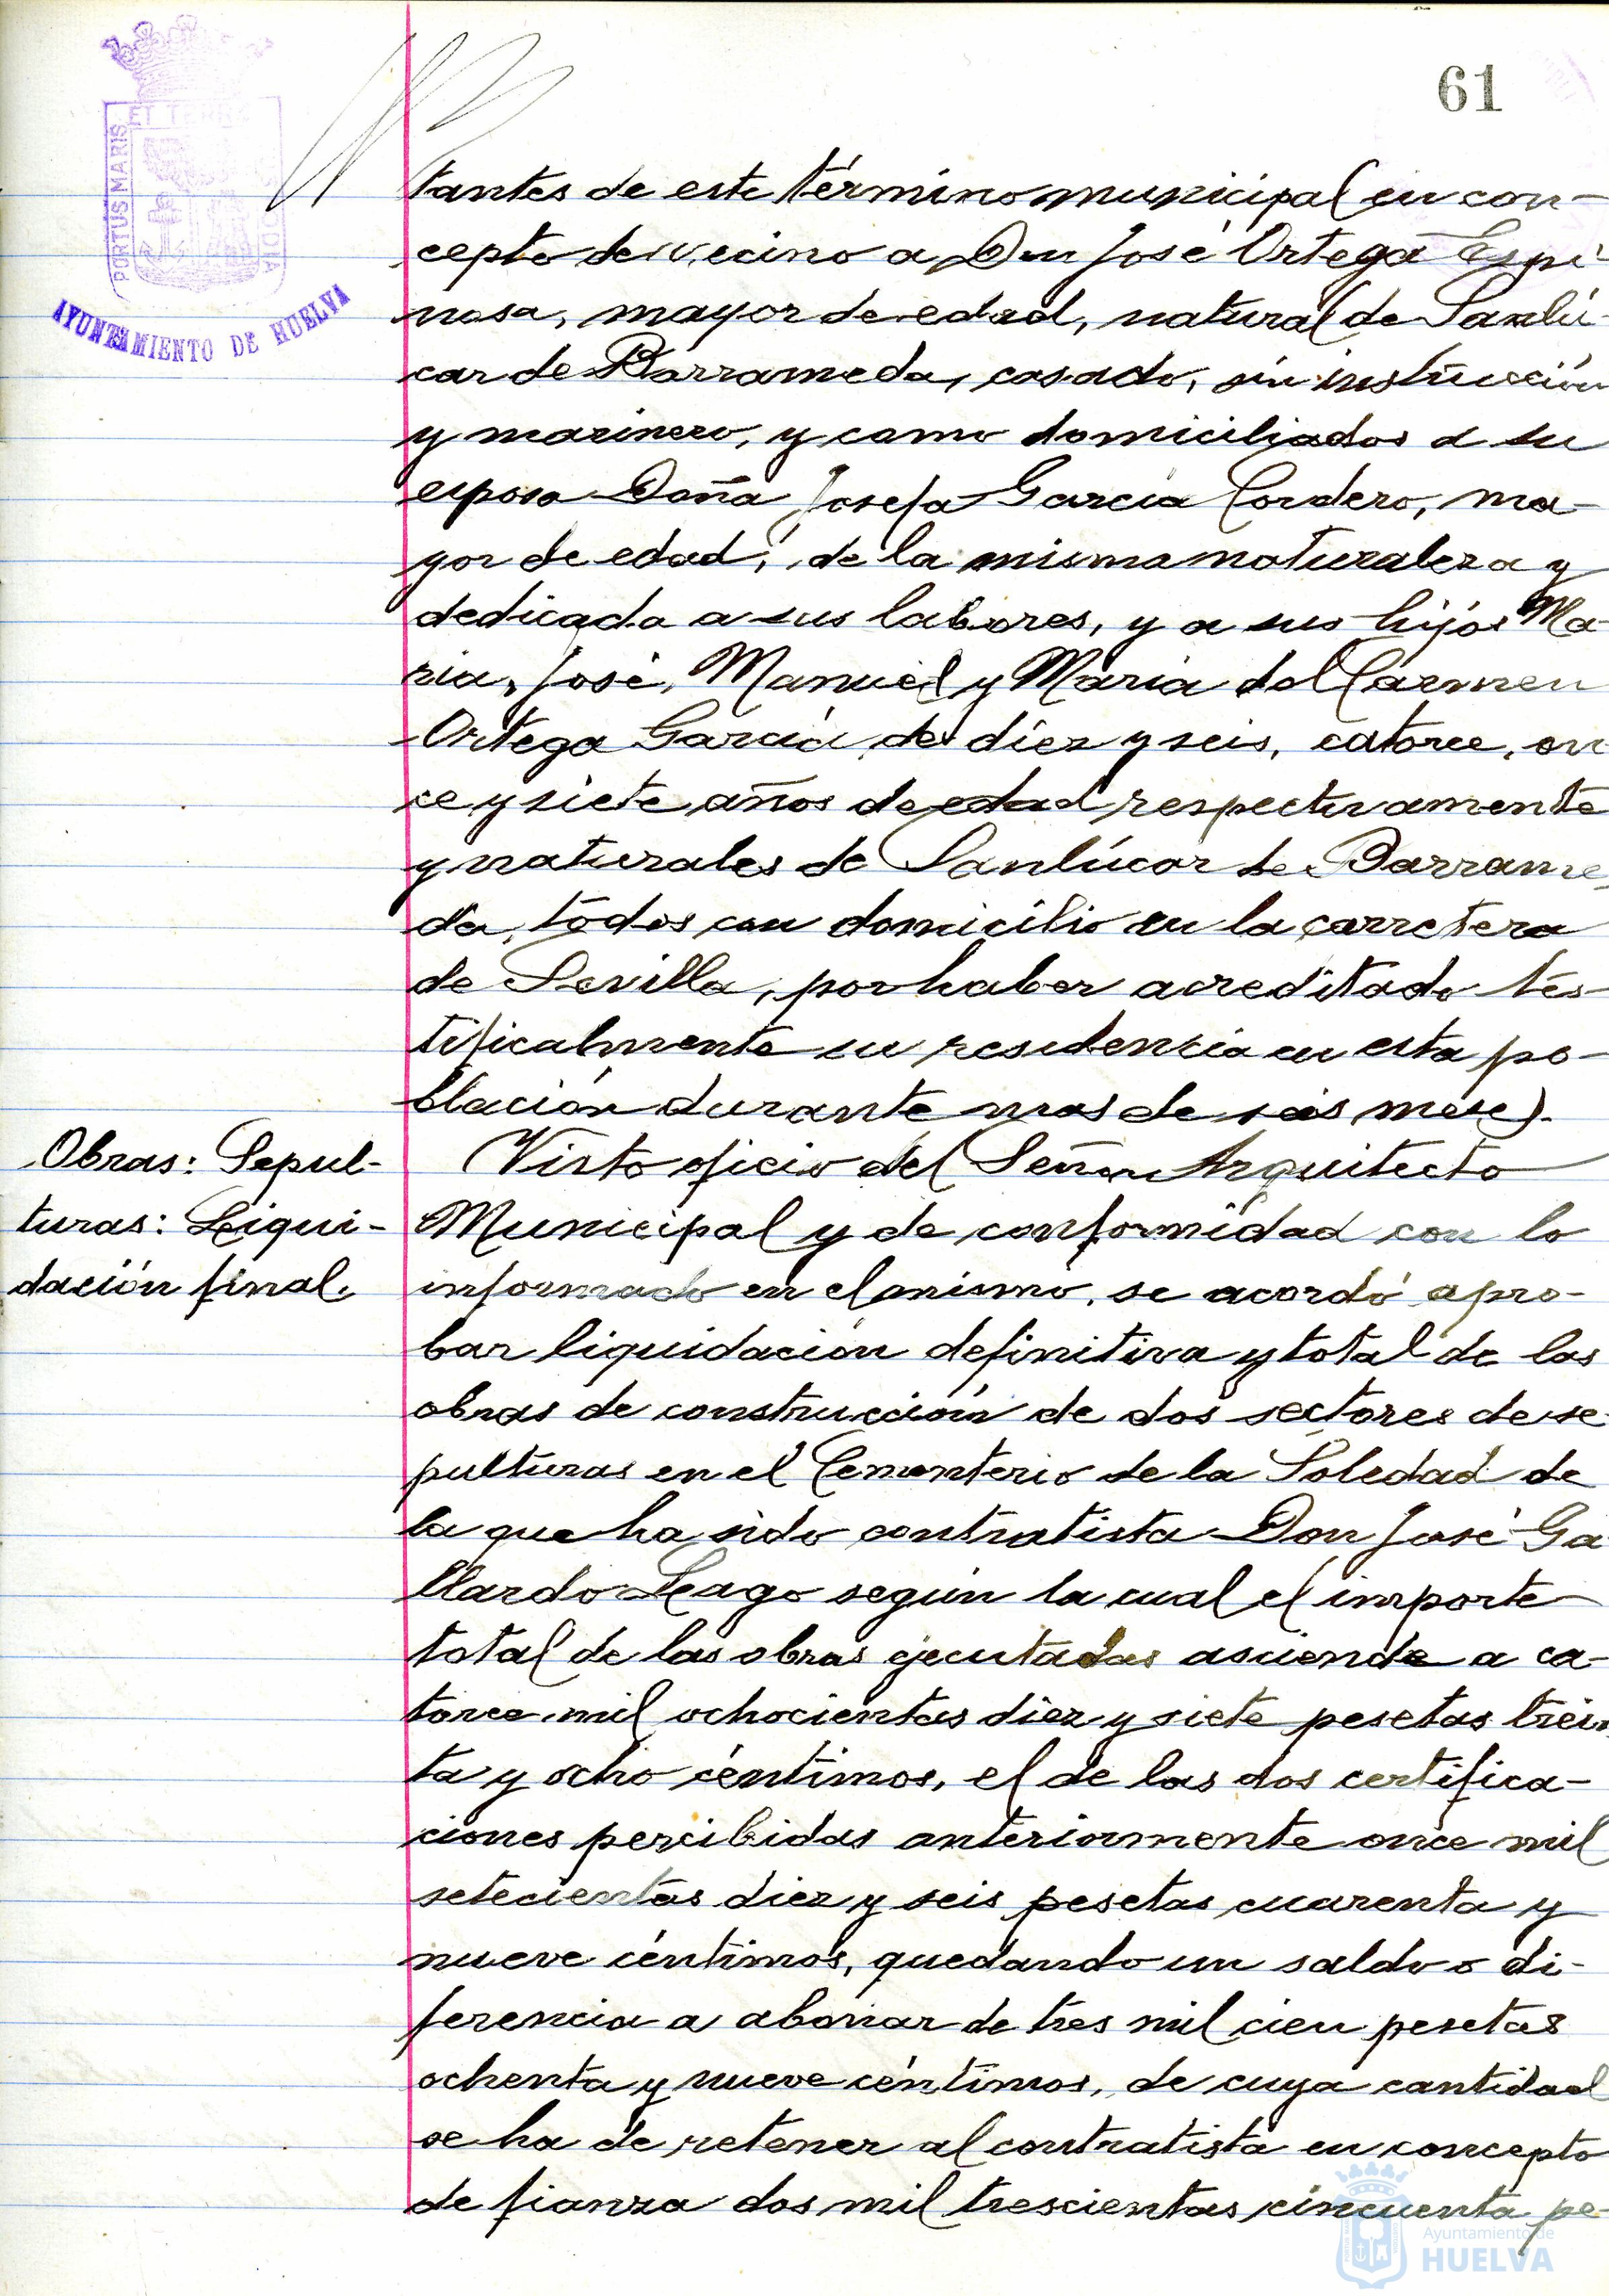 61
ET TERRE
PORTUS MARIS
ODIA
AYUNTAMIENTO DE HUELVA
tantes de este término municipal en con-
cepto de vecino a Don José Ortega Espi-
nosa, mayor de edad, natural de Sanlú-
car de Barrameda, casado, sin instrucción
y marinero, y como domiciliados a su
esposa Doña Josefa García Cordero, ma-
yor de edad, de la misma naturaleza y
dedicada a sus labores, y a sus hijos Ma-
ria, José, Manuel y María del Carmen
Ortega García de diez y seis, catorce, on
ce y siete años de edad respectivamente
y naturales de Sanlúcar de Barrame
da, todos con domicilio en la carretera
de Sevilla, por haber acreditado tes-
tificalmente su residencia en esta po-
blación durante mas de seis meses.
Obras: Sepul-
turas: Liqui-
dación final.
Visto oficio del Señor Arquitecto
Municipal y de conformidad con lo
informado en el mismo, se acordó apro-
bar liquidación definitiva y total de las
obras de construcción de dos sectores de se
pulturas en el Cementerio de la Soledad de
la que ha sido contratista Don José Ga
llardo Lago según la cual el importe
total de las obras ejecutadas asciende a ca-
torce mil ochocientas diez y siete pesetas trein
ta y ocho céntimos, el de las dos certifica-
ciones percibidas anteriormente once mil
setecientas diez y seis pesetas cuarenta y
nueve céntimos, quedando un saldo o di-
ferencia a abonar de tres mil cien pesetas
ochenta y nueve céntimos, de cuya cantidad
se ha de retener al contratista en concepto
de fianza dos mil trescientas cincuenta pe-
Ayuntamiento de
HUELVA